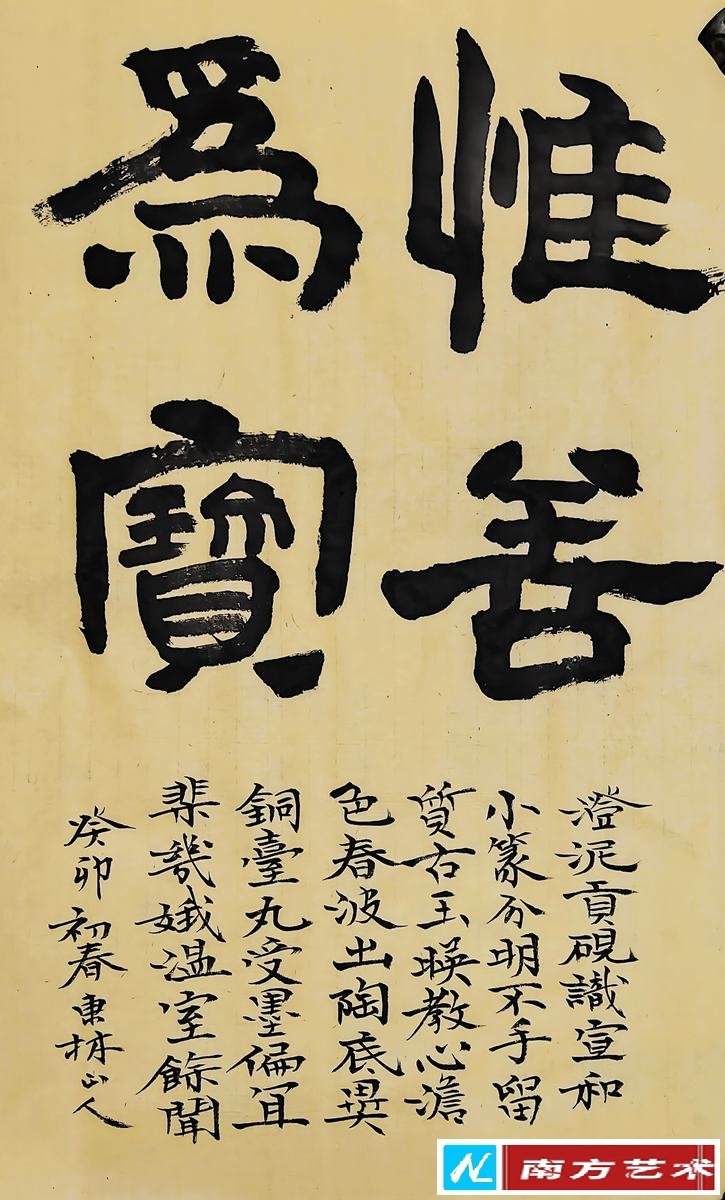 惟善
為寶
澄泥貢硯識宣和
小篆分明不手留
質右玉暎教心澹
色春波出陶底異
銅臺丸受墨偏宜
棐幾娥溫室餘聞
癸卯初春東林山人
南方艺术